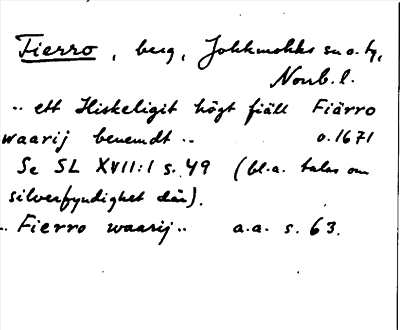 Fierro, berg, Jokkmokks sn o. tg,
Norrb. l.
.. ett Hiskeligit högt fiäll Fiärro
waarij benemdt .. o. 1671
Se SL XVII:1 s. 49 (bl.a. talas om
silverfyndighet där).
.. Fierro waarij .. a.a. s. 63.